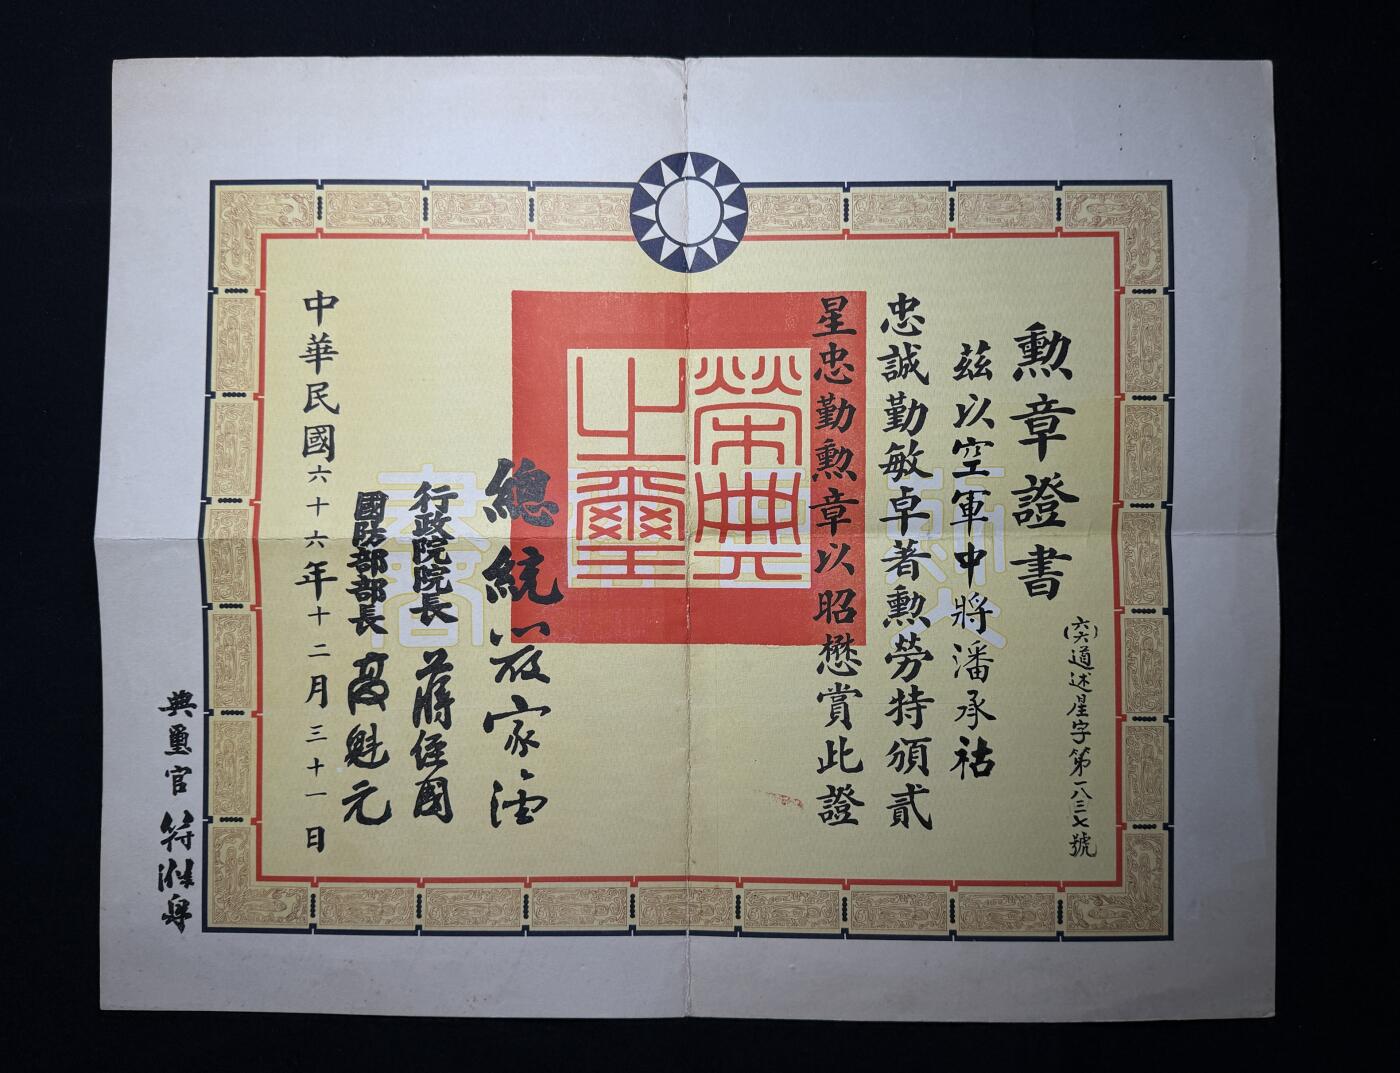 勳章證書
(六六)道述星字第一八三七號
茲以空軍中將潘承祜
忠誠勤敏卓著勳勞特頒貳
星忠勤勳章以昭懋賞此證
榮典
之璽
總統嚴家淦
行政院院長蔣經國
國防部部長高魁元
中華民國六十六年十二月三十一日
典璽官
勳章證書